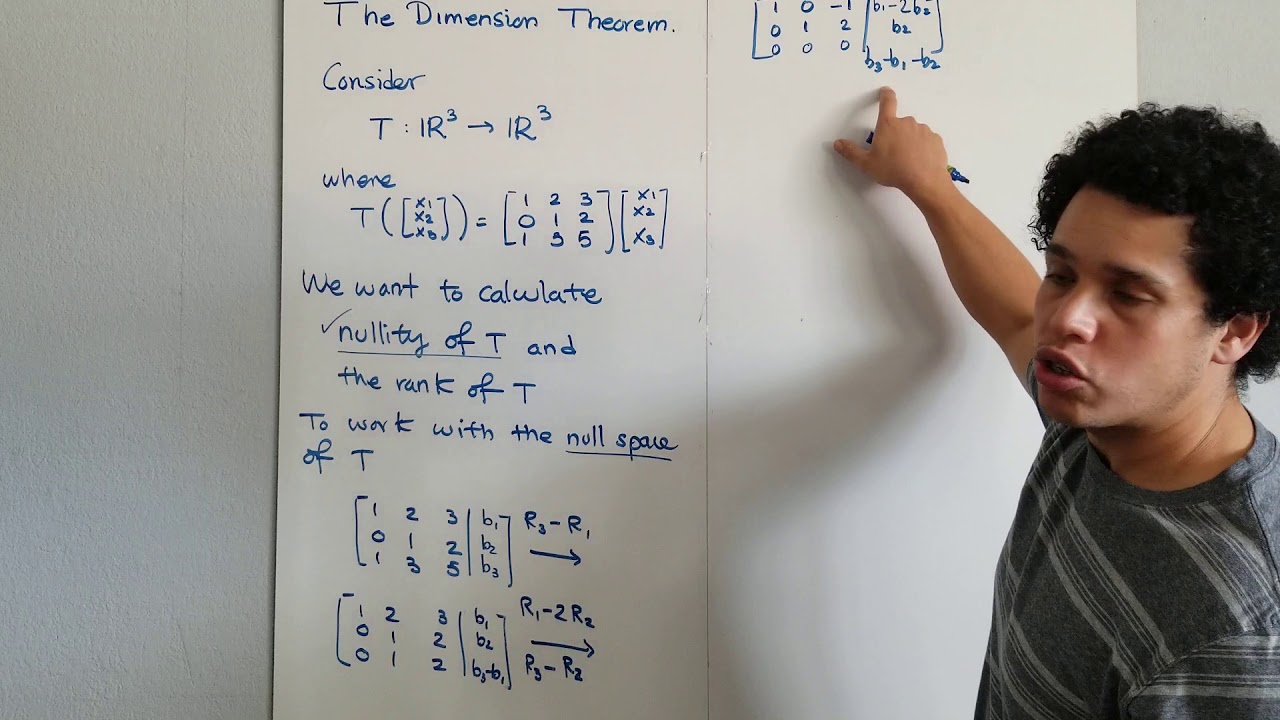 The Dimension Theorem.
Consider
T : ℝ³ → ℝ³
where
T([x1 x2 x3]) = [1 2 3; 0 1 2; 1 3 5] [x1 x2 x3]
We want to calculate
✓nullity of T and
the rank of T
To work with the null space
of T
[1 2 3 | b1] R3 - R1
[0 1 2 | b2] →
[1 3 5 | b3]
[1 2 3 | b1] R1 - 2R2
[0 1 2 | b2] →
[0 1 2 | b3-b1] R3 - R2
[1 0 -1 | b1-2b2]
[0 1 2 | b2]
[0 0 0 | b3-b1-b2]